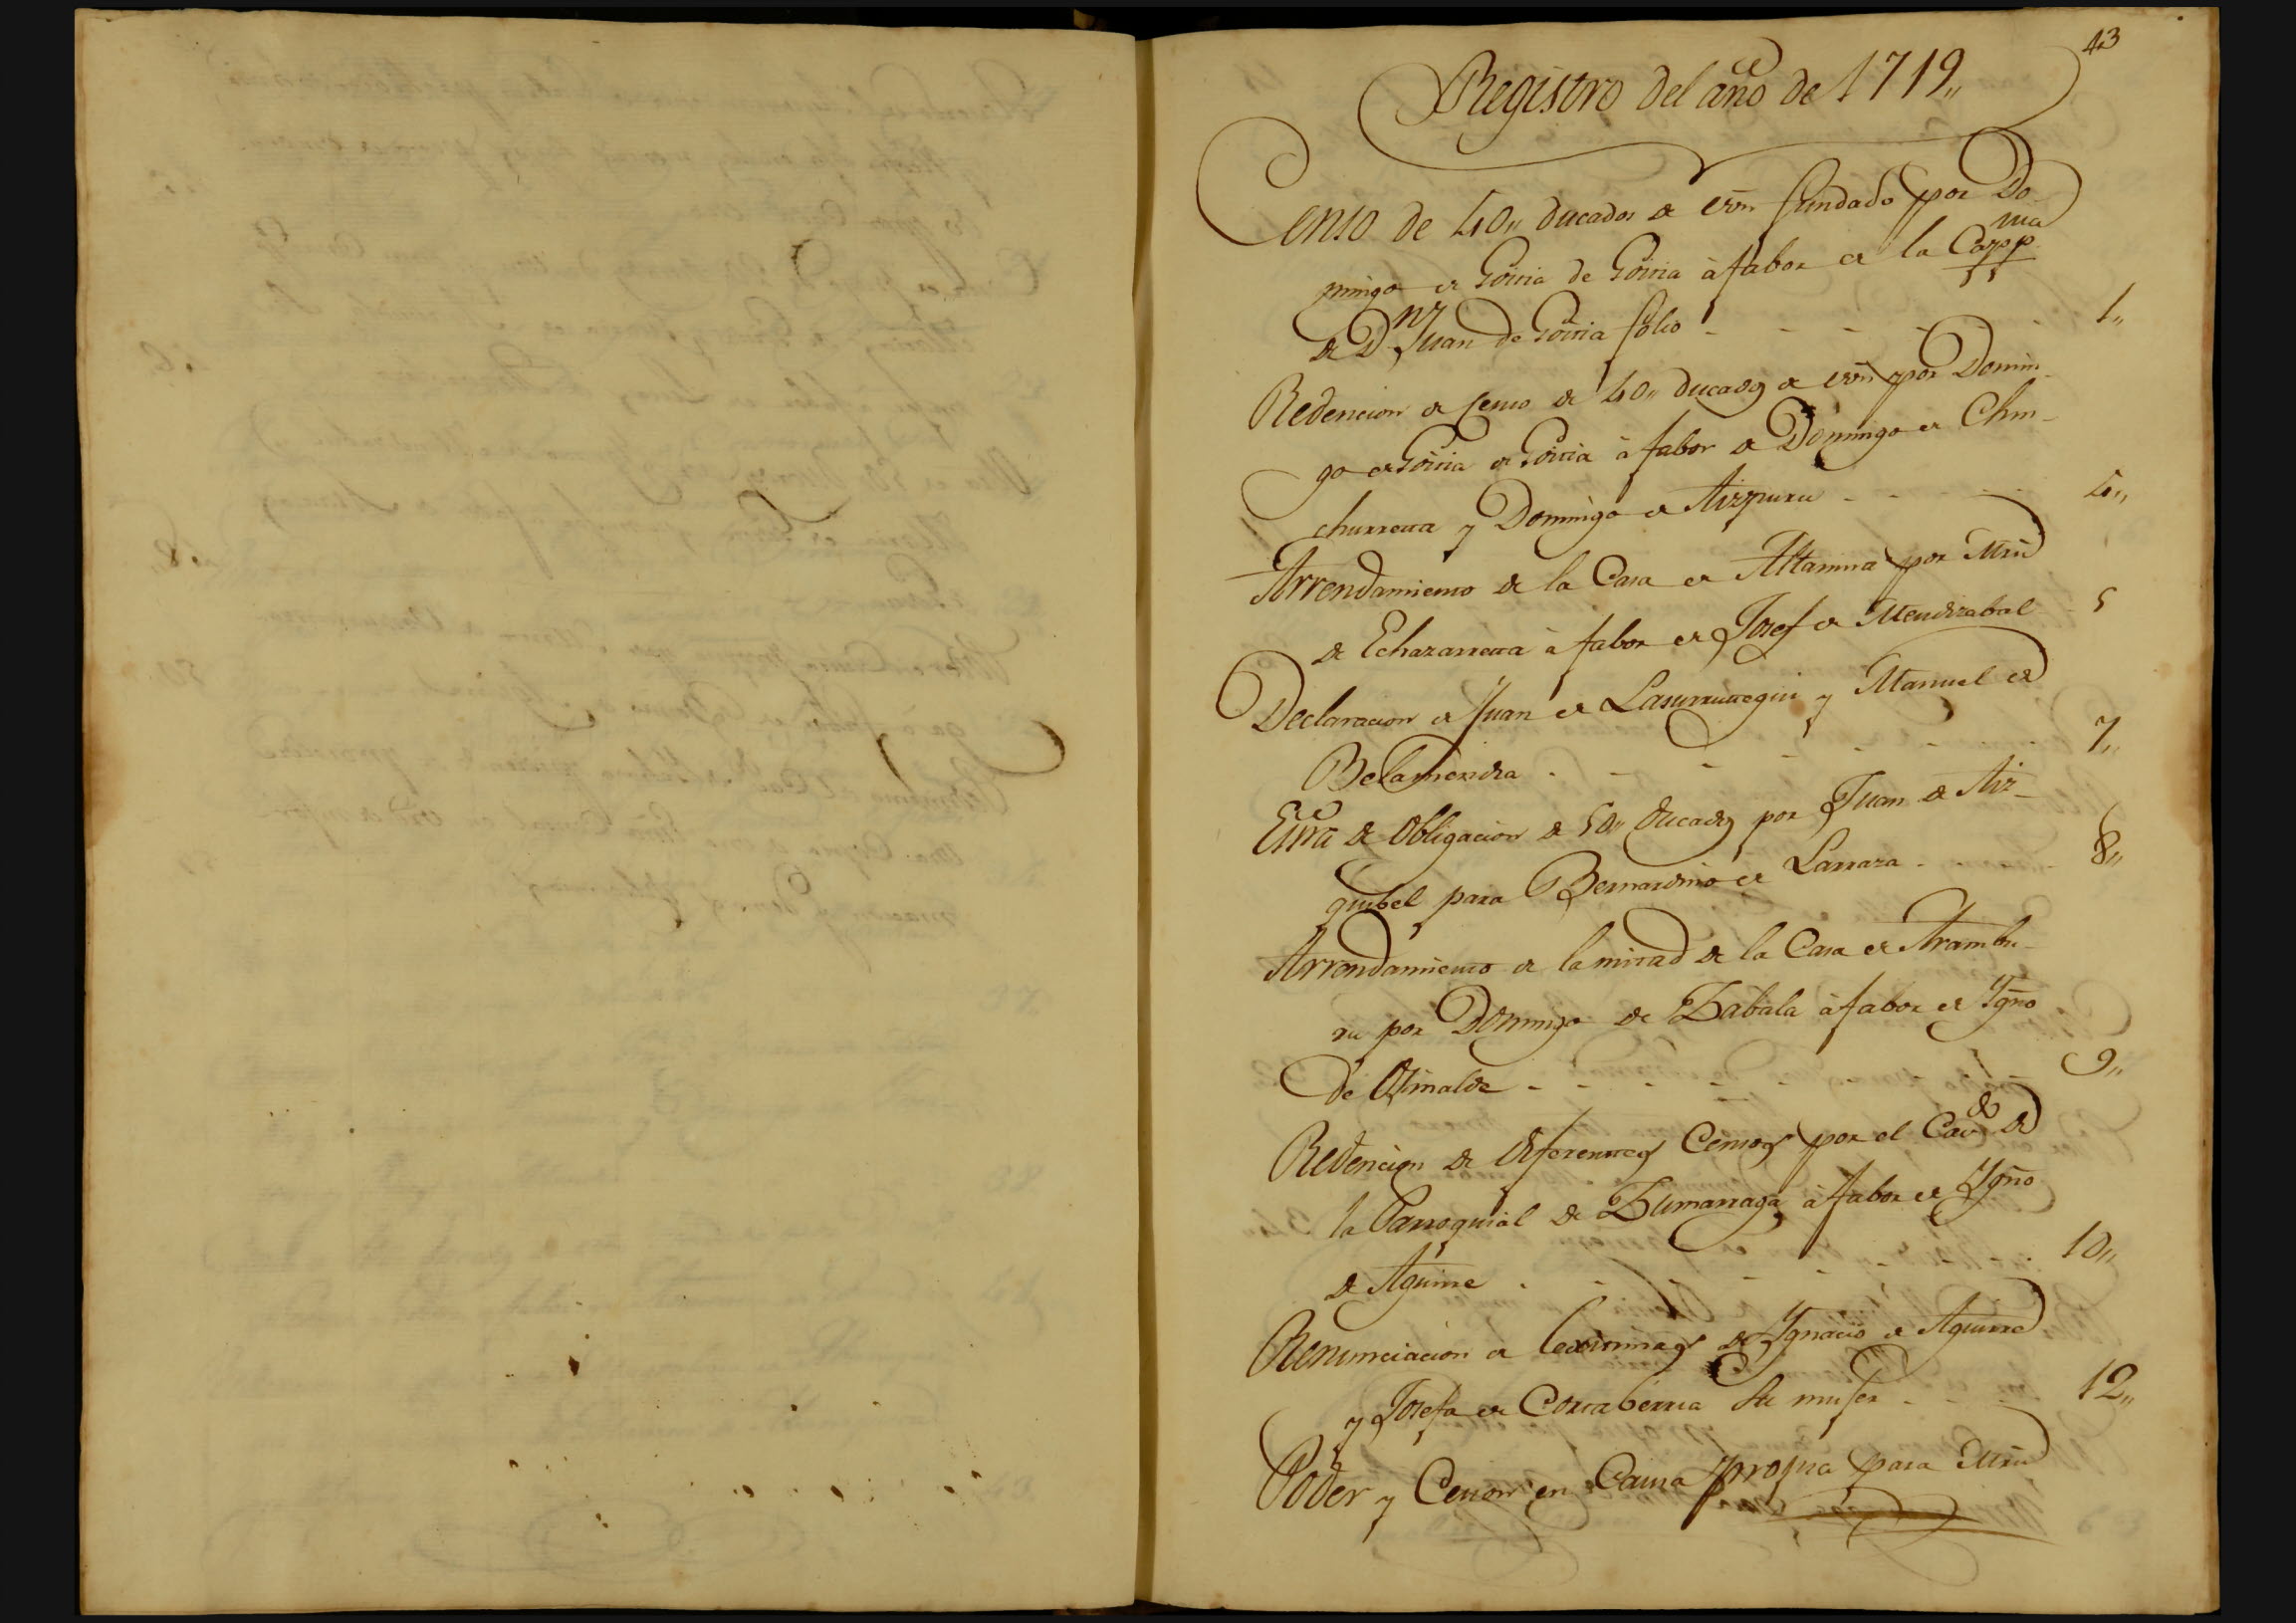 43
Registro del año de 1719,,
Censo de 40,, ducados de vón fundado por Do-
mingo de Goiria de Goiria à fabor de la Capp.ⁿⁱᵃ
de Dⁿ Juan de Goiria folio - - - - - - 1,,
Redencion de Censo de 40,, ducados de vón por Domin-
go de Goiria de Goiria à fabor de Domingo de Chin-
churreta y Domingo de Aizpuru - - - - - 4,,
Arrendamiento de la Casa de Altamira por Mrñ
de Echazarreta à fabor de Josef de Mendizabal - 5
Declaracion de Juan de Lasurtutegui y Manuel de
Belamendia - - - - - - - 7,,
Esčra de Obligacion de 50,, ducados por Juan de Aiz-
quibel para Bernardino de Larraza - - - 8,,
Arrendamiento de la mitad de la Casa de Arambu-
ru por Domingo de Zabala à fabor de Ygño
de Ozinalde - - - - - - - 9,,
Redencion de diferentes Censos por el Cavᵈᵒ de
la Parroquial de Zumarraga à fabor de Ygño
de Aguirre - - - - - - - 10,,
Renunciacion de Lexitimas de Ygnacio de Aguirre
y Josefa de Cortaberria su muger - - - 12,,
Poder y Cesion en Causa propia para Mrñ